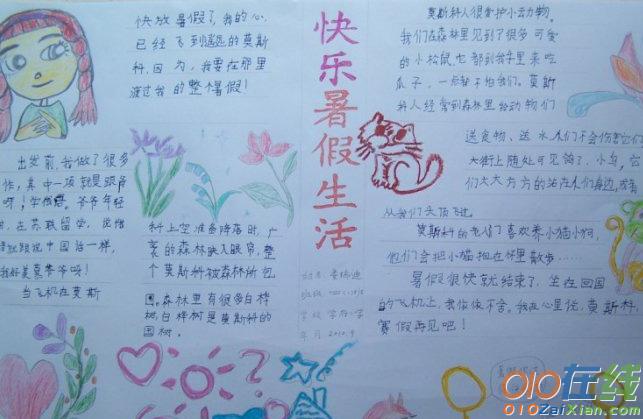 快乐暑假生活
快放暑假了，我的心
已经飞到遥远的莫斯
科，因为，我要在那里
渡过我的整个暑假！
出发前，我做了很多
作，其中一项就是跟爷
呀！学俄
爷爷年轻
，在苏联留学，说俄
说中国话一样，
我好羡慕爷爷啊！
当飞机在莫斯
科上空准备降落时，广
袤的森林嵌入眼帘，整
个莫斯科被森林所包
围。森林里有很多白桦
树，白桦树是莫斯科的
国树。
莫斯科人很爱护小动物。
我们在森林里见到了很多可爱
的小松鼠，它都到我手里来吃
瓜子，一点都不怕我们。莫斯
科人经常到森林里给动物们
送食物、送水，人们不会伤害它们
大街上随处可见鸽子、小鸟，它
们大大方方的站在人们身边，或者
从我们头顶飞过。
莫斯科的老人们喜欢养小猫小狗，
他们会把小猫抱在怀里散步……
暑假很快就结束了，坐在回国
的飞机上，我依依不舍。我在心里说，莫斯科，
暑假再见吧！
姓名
班级
学校
年月 2010.9
010在线
010ZaiXian.com